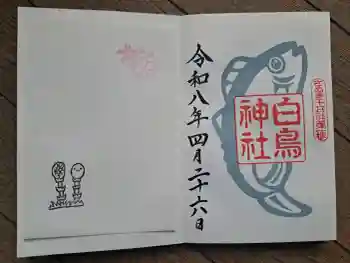 白鳥
神社
令和八年四月二十六日